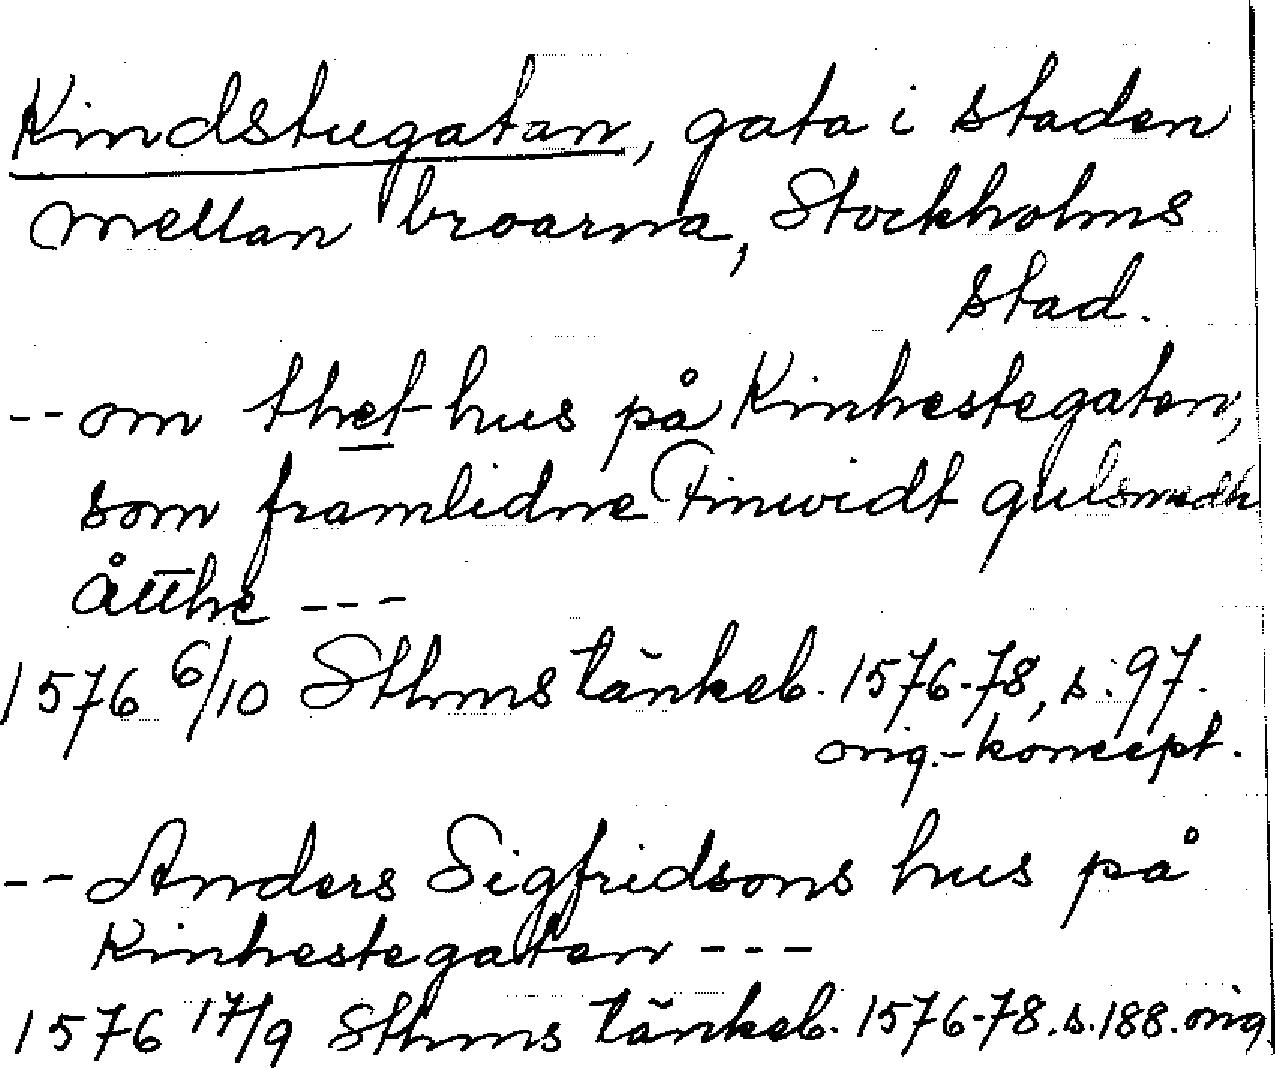 Kindstugatan, gata i staden
mellan broarna, Stockholms
stad.
-- om thet hus på Kinhestegaten,
som framlidne Finvidt gulsmedh
åtthe ---
1576 6/10 Sthms tänkeb. 1576-78, s. 97.
orig.-koncept.
-- Anders Sigfridsons hus på
Kinhestegaten ---
1576 17/9 Sthms tänkeb. 1576-78. s. 188. orig.